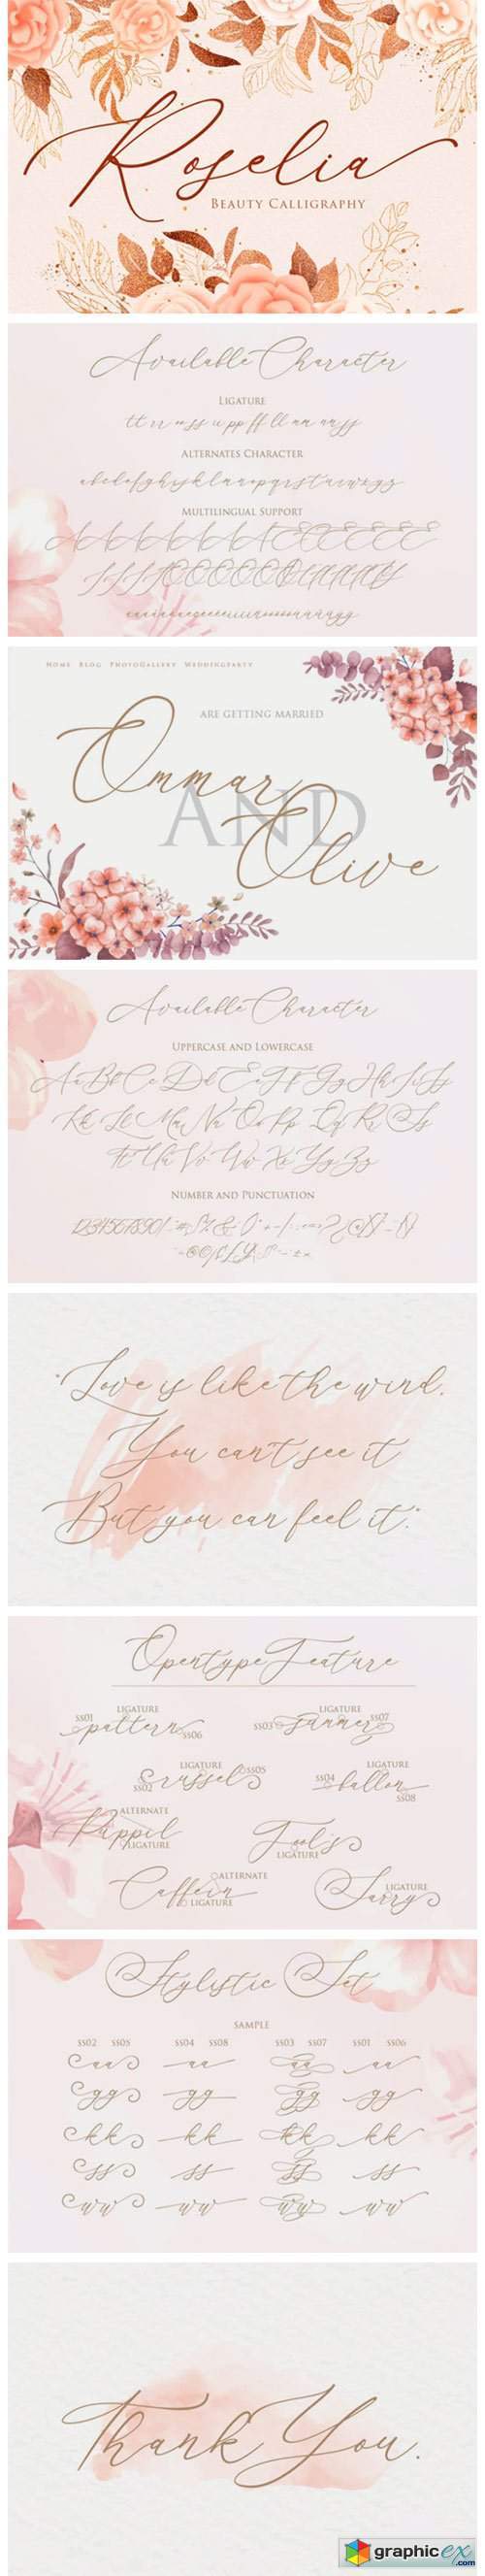 Roselia
BEAUTY CALLIGRAPHY
Available Character
LIGATURE
ALTERNATES CHARACTER
MULTILINGUAL SUPPORT
HOME BLOG PHOTOGALLERY WEDDINGPARTY
ARE GETTING MARRIED
Ommar
AND
Olive
Available Character
UPPERCASE AND LOWERCASE
Aa Bb Cc Dd Ee Ff Gg Hh Ii Jj
Kk Ll Mm Nn Oo Pp Qq Rr Ss
Tt Uu Vv Ww Xx Yy Zz
NUMBER AND PUNCTUATION
"Love is like the wind.
You can't see it
But you can feel it."
Opentype Feature
SS01 LIGATURE pattern SS06
SS03 LIGATURE summer SS07
SS02 LIGATURE russels SS05
SS04 LIGATURE ballon SS08
ALTERNATE Puppil LIGATURE
Fools LIGATURE
Caffein ALTERNATE LIGATURE
Sarry LIGATURE
Stylistic Set
SAMPLE
SS02 SS05 SS04 SS08 SS03 SS07 SS01 SS06
aa aa aa aa
gg gg gg gg
kk kk kk kk
ss ss ss ss
ww ww ww ww
Thank You.
graphicex.com